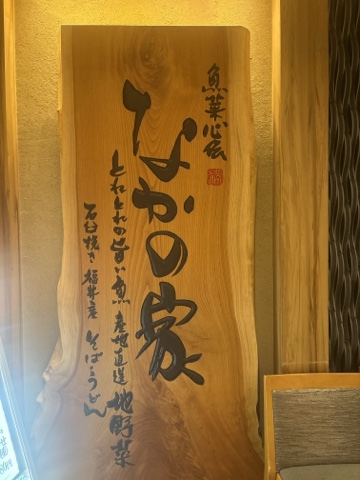 魚菜心伝
なかの家
とれとれの旨い魚 産地直送 地野菜
石臼挽き 福井産 そば・うどん